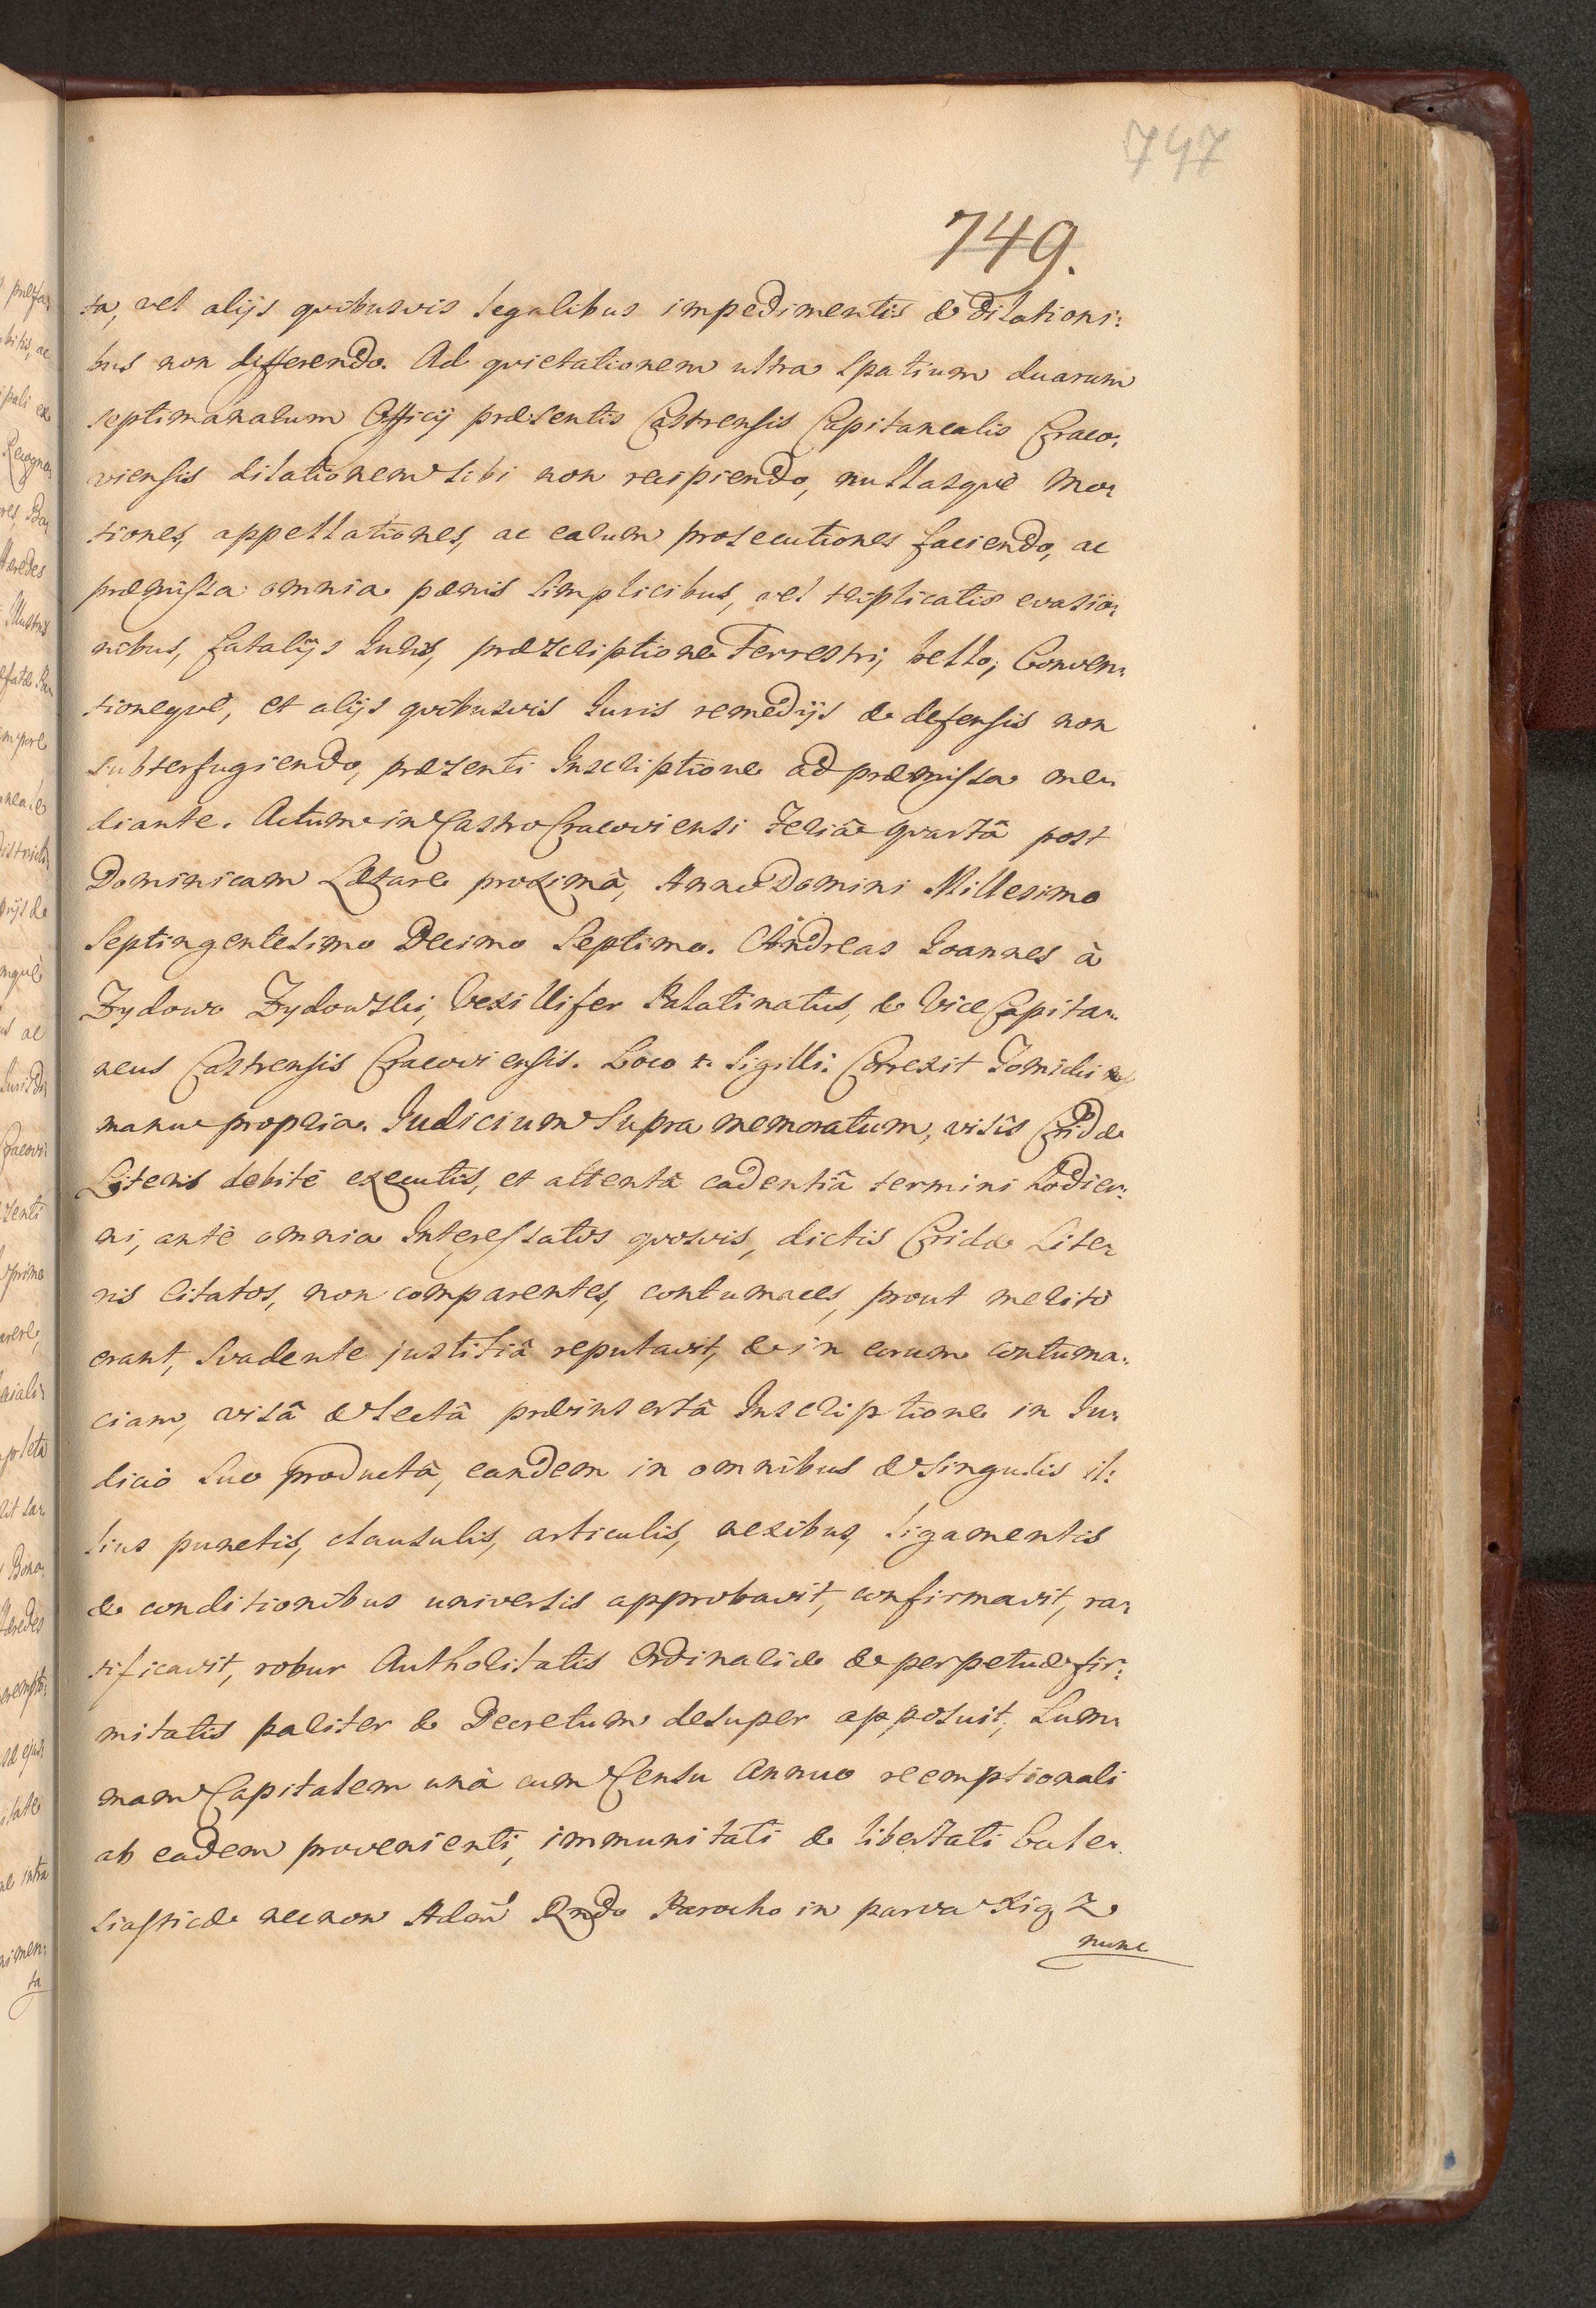 747
749.
ta, vel alijs quibusvis legalibus impedimentis & dilationi:
bus non differendo. Ad quietationem ultra spatium duarum
septimanarum Officij præsentis Castrensis Capitanealis Craco:
viensis dilationem sibi non recipiendo, nullasquè mo:
tiones, appellationes, ac earum prosecutiones faciendo, ac
præmissa omnia pænis simplicibus, vel triplicatis evasio:
nibus, fatalijs Juris, præscriptione Terrestri, bello, Conven:
tionequè, et alijs quibusvis Juris remedijs & defensis non
subterfugiendo, præsenti Inscriptione ad præmissa me:
diante. Actum in Castro Cracoviensi Feriâ quartâ post
Dominicam Lætare proximâ, Anno Domini Millesimo
Septingentesimo Decimo Septimo. Andreas Joannes à
Zydowo Zydowski, Vexillifer Palatinatus, & Vice Capita:
neus Castrensis Cracoviensis. Loco +. Sigilli: Correxit Tomicki
manu propria. Judicium supra memoratum, visis Cridæ
Literis debitè executis, et attentâ cadentiâ termini hodier:
ni, antè omnia Interessatos quosvis, dictis Cridæ Lite:
ris citatos, non comparentes, contumaces, prout meritò
erant, svadente justitiâ reputavit, & in eorum contuma:
ciam, visâ & lectâ præinsertâ Inscriptione in Ju:
dicio suo productâ, eandem in omnibus & singulis il:
lius punctis, clausulis, articulis, nexibus, ligamentis
& conditionibus universis approbavit, confirmavit, ra:
tificavit, robur Authoritatis Ordinariæ & perpetuæ fir:
mitatis pariter & Decretum desuper apposuit, Sum:
mam Capitalem unà cum Censu Annuo reemptionali
ab eadem provenienti, immunitati & libertati Eccle:
siasticæ necnon Adm̃ Rndo Parocho in parva Xią Z.
nunc